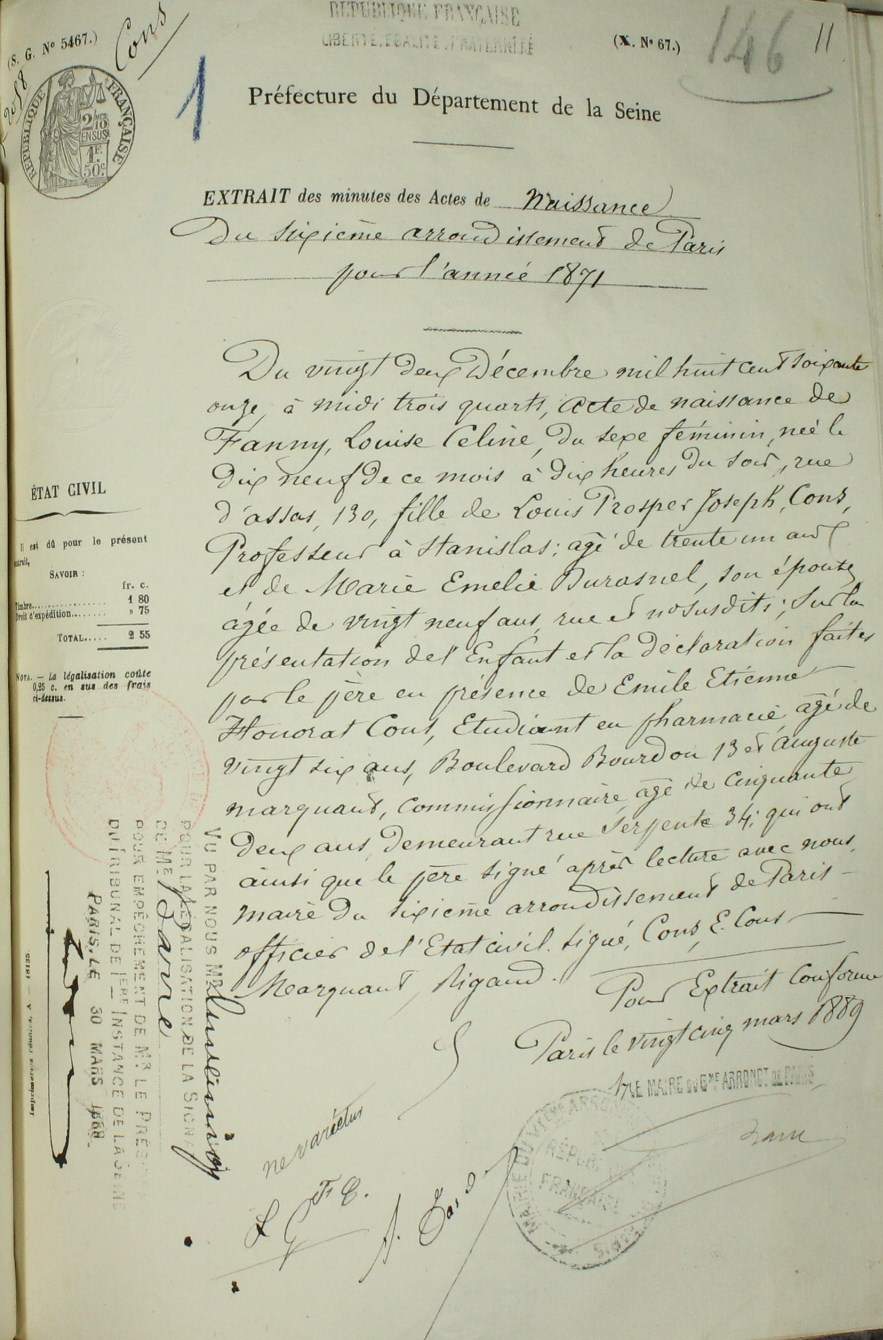 RÉPUBLIQUE FRANÇAISE
LIBERTÉ, ÉGALITÉ, FRATERNITÉ
(S. G. N° 5467.)
(X. N° 67.)
146
11
Cons
1
RÉPUBLIQUE FRANÇAISE
2/10
EN SUS
1F
50c
Préfecture du Département de la Seine
EXTRAIT des minutes des Actes de Naissance
Du sixième arrondissement de Paris
pour l'année 1871
Du vingt deux Décembre mil huit cent soixante
onze, à midi trois quarts, acte de naissance de
Fanny, Louise Celine, du sexe féminin, née le
dix neuf de ce mois à dix heures du soir, rue
d'assas, 130, fille de Louis Prosper Joseph, Cons,
Professeur à Stanislas; agé de trente un ans
et de Marie Emelie Durosnel, son épouse,
âgée de vingt neuf ans, rue et no susdits; Sur la
présentation de l'Enfant et la déclaration faites
par le père en présence de Emile Etienne
Honorat Cons, Etudiant en pharmacie, agé de
vingt six ans, Boulevard Bourdon 13 et Auguste
marquant, commissionnaire, agé de cinquante
deux ans, demeurant rue Serpente 34; qui ont
ainsi que le père signé après lecture avec nous,
maire du sixième arrondissement de Paris
officier de l'Etat civil. Signé, Cons, E. Cons
Marquant, Rigaud.
Pour Extrait Conforme
Paris le vingt cinq mars 1889
LE MAIRE DU 6ME ARRONDT DE PARIS
MAIRIE DU VIEME ARRON
RÉPUBLIQUE
FRANÇAISE
ne varietur
ÉTAT CIVIL
Il est dû pour le présent
extrait,
SAVOIR :
fr. c.
Timbre............ 1 80
Droit d'expédition....... » 75
TOTAL..... 2 55
NOTA. — La légalisation coûte
0,25 c. en sus des frais
ci-dessus.
VU PAR NOUS MR
POUR LA LÉGALISATION DE LA SIGNA
DE ME
POUR EMPÊCHEMENT DE MR LE PRÉS
DU TRIBUNAL DE 1ÈRE INSTANCE DE LA SEINE
PARIS, LE 30 MARS